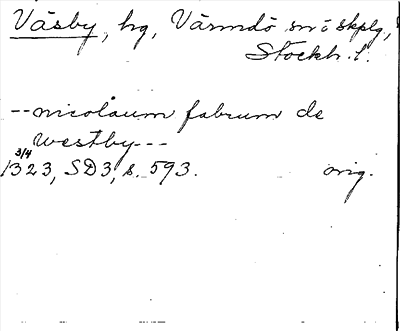 Väsby, hg, Värmdö sn o skplg,
Stockh. l.
-- nicolaum fabrum de
westby---
3/4
1323, SD3, s. 593. orig.